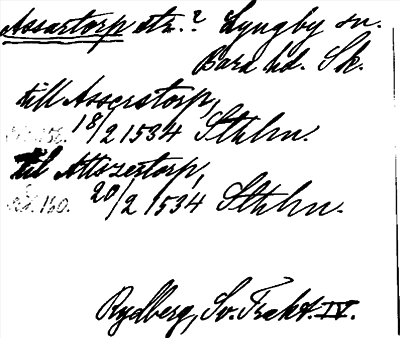 Assartorp etr.? Lyngby sn.
Bara hd. Sk.
till Asserstorp,
s. 156. 18/2 1534 Sthlm.
til Attszertorp,
s. 160. 20/2 1534 Sthlm.
Rydberg, Sv. Trakt. IV.